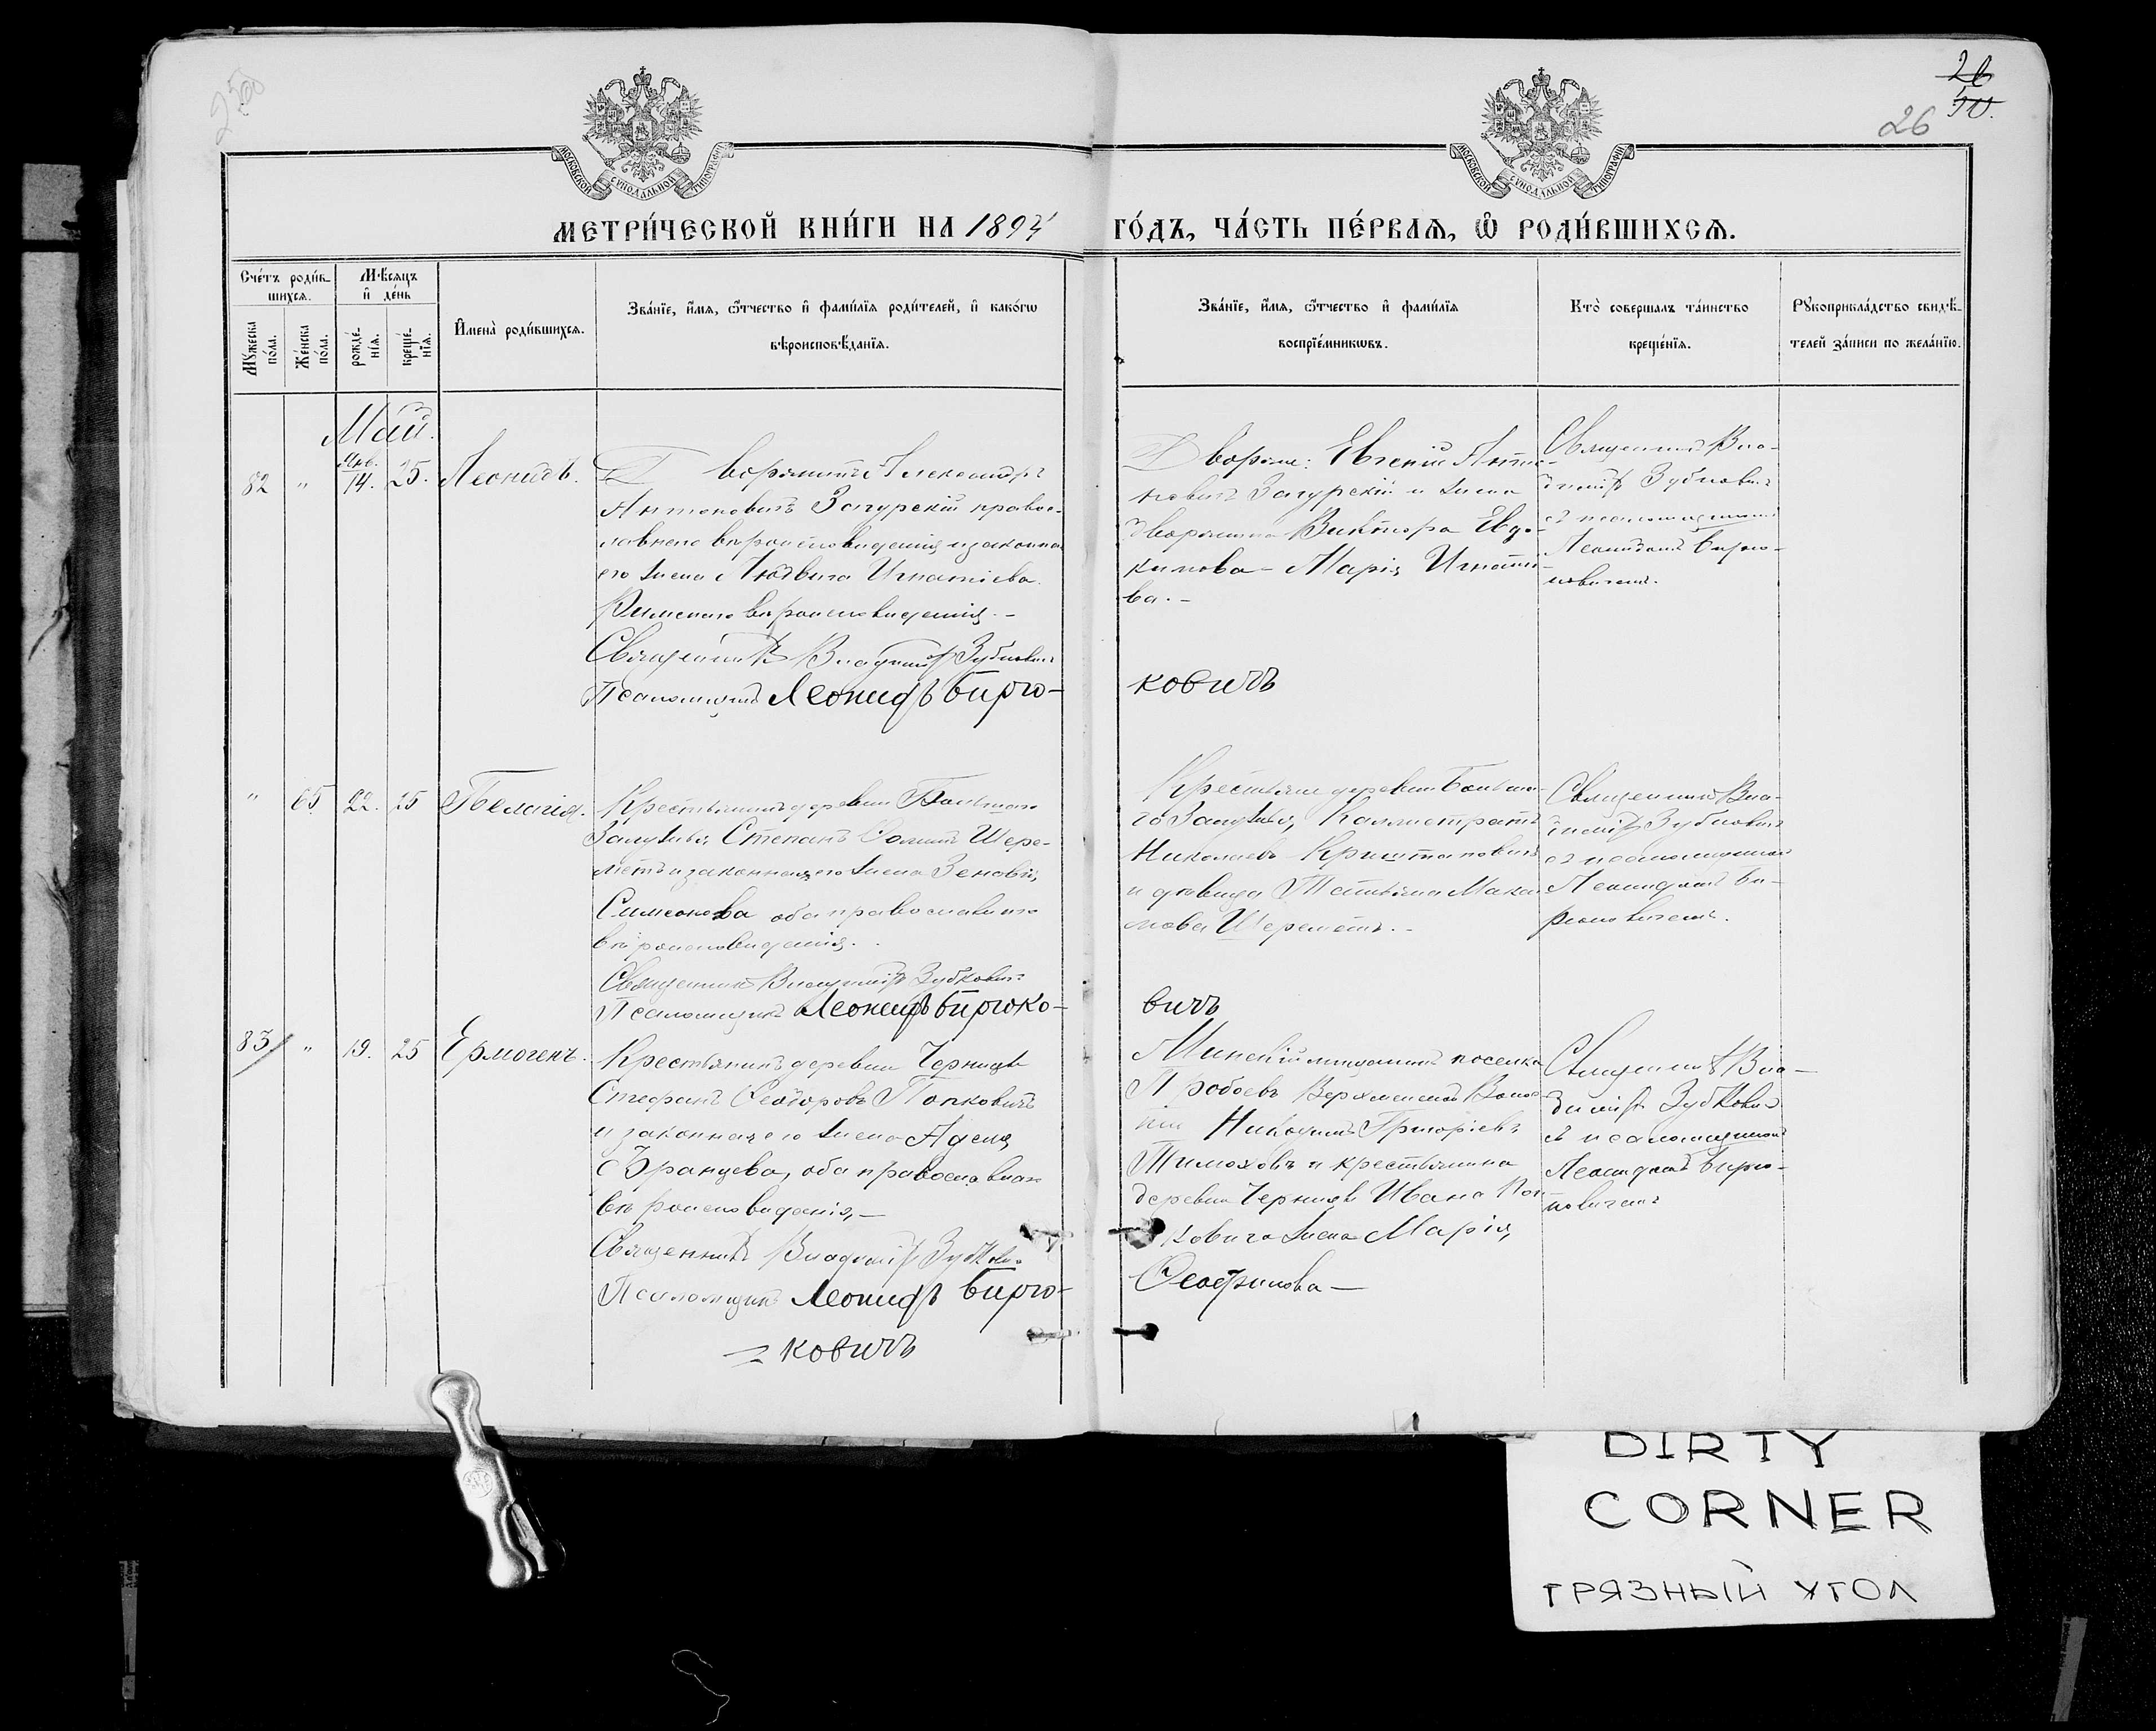 250
26
50.
26
МОСКОВСКОЙ СѴНОДАЛЬНОЙ ТИПОГРАФІИ
МОСКОВСКОЙ СѴНОДАЛЬНОЙ ТИПОГРАФІИ
МЕТРИ́ЧЕСКОЙ КНИ́ГИ НА 1894 ГО́ДЪ, ЧА́СТЬ ПЕ́РВАѦ, Ѡ РОДИ́ВШИХСѦ.
Сче́тъ роди́в-
шихсѧ.
Мѣ́сяцъ
и де́нь
Мꙋ́жеска
по́ла.
Же́нска
по́ла.
рожде́-
нїѧ.
креще́-
нїѧ.
Имена̀ роди́вшихсѧ.
Зва́нїе, и́мѧ, ѻ҆́тчество и фами́лїѧ роди́телей, и како́гѡ
вѣроисповѣ́данїѧ.
Зва́нїе, и́мѧ, ѻ҆́тчество и фами́лїѧ
воспрїе́мникѡвъ.
Кто̀ соверша́лъ та́инство
креще́нїѧ.
Рꙋкоприкла́дство свидѣ́-
телей за́писи по жела́нїю.
Май.
82 " Янв. 14. 25. Леонидъ.
Дворянинъ Александръ
Антоновичъ Загурскій правос-
лавнаго вѣроисповѣданія и законная
его жена Людвига Игнатіева
Римскаго вѣроисповѣданія. -
Священникъ Владиміръ Зубковичъ
Псаломщикъ Леонидъ Бирю-
ковичъ
Дворяне: Евгеній Анто-
новичъ Загурскій и жена
дворянина Виктора Евдо-
кимова - Марія Игнатіе-
ва. -
Священникъ Вла-
диміръ Зубковичъ
съ псаломщикомъ
Леонидомъ Бирю-
ковичемъ.
" 65 22. 25 Пелагія.
Крестьянинъ деревни Большаго
Степанъ Шере-
метъ и законная его жена Зеновія
Симеонова оба православнаго
вѣроисповѣданія.
Священникъ Владиміръ Зубковичъ
Псаломщикъ Леонидъ Бирюко-
вичъ
Крестьяне деревни Больша-
го Каллистратъ
Николаевъ Криштаповичъ
и дѣвица Татьяна
Шереметъ. -
Священникъ Вла-
диміръ Зубковичъ
съ псаломщикомъ
Леонидомъ Би-
рюковичемъ.
83 " 19. 25 Ермогенъ.
Крестьянинъ деревни
Стефанъ Ѳеодоровъ Попковичъ
и законная его жена
Францева, оба православнаго
вѣроисповѣданія, -
Священникъ Владиміръ Зубкович
Псаломщикъ Леонидъ Бирю-
= ковичъ
Минскій мѣщанинъ поселка
Волос-
ти Григорьевъ
Тимоховъ и крестьянина
деревни Ивана Поп-
ковича жена Марія
Священникъ Вла-
диміръ Зубкович
съ псаломщикомъ
Леонидомъ Бирю-
ковичемъ
DIRTY
CORNER
ГРЯЗНЫЙ УГОЛ